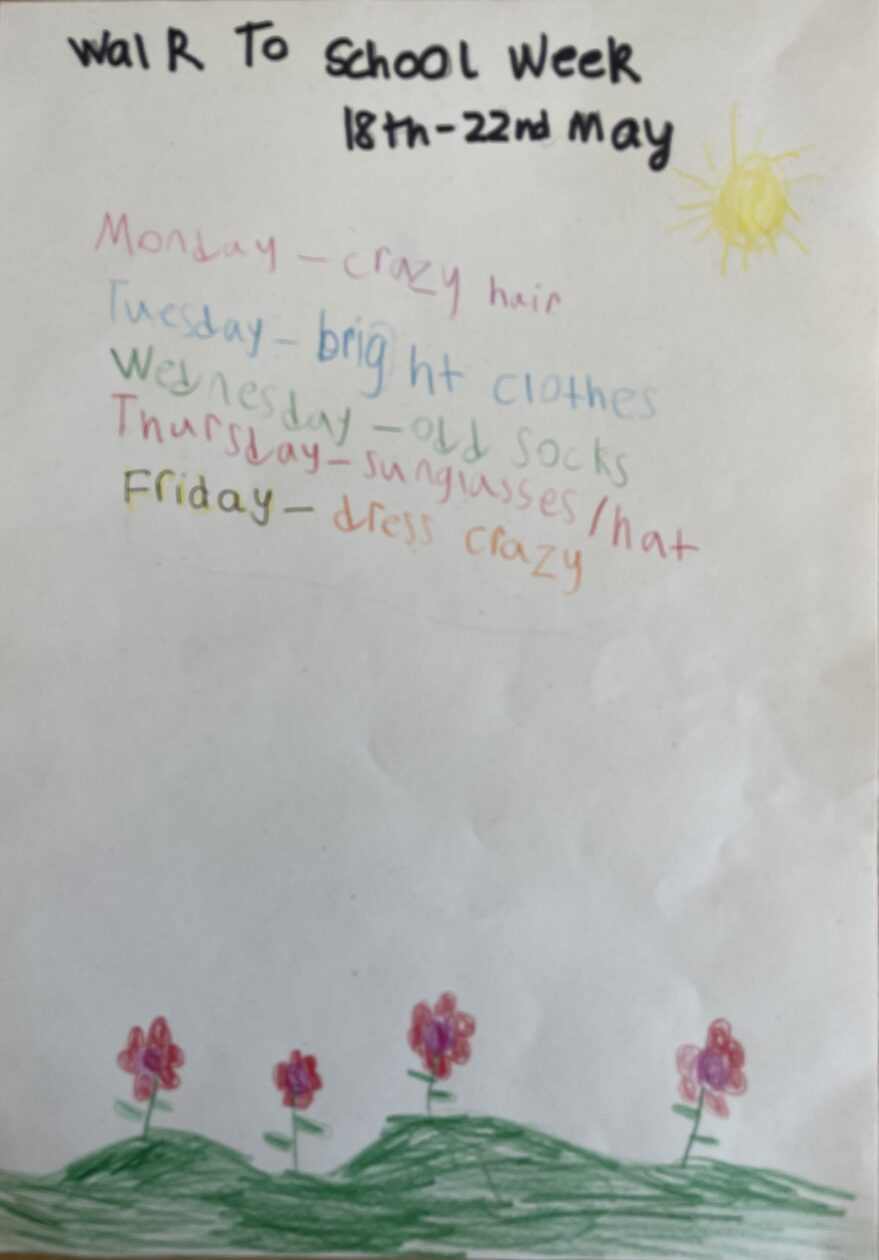 Walk To School Week
18th-22nd May
Monday - crazy hair
Tuesday - bright clothes
Wednesday - old socks
Thursday - sunglasses/hat
Friday - dress crazy